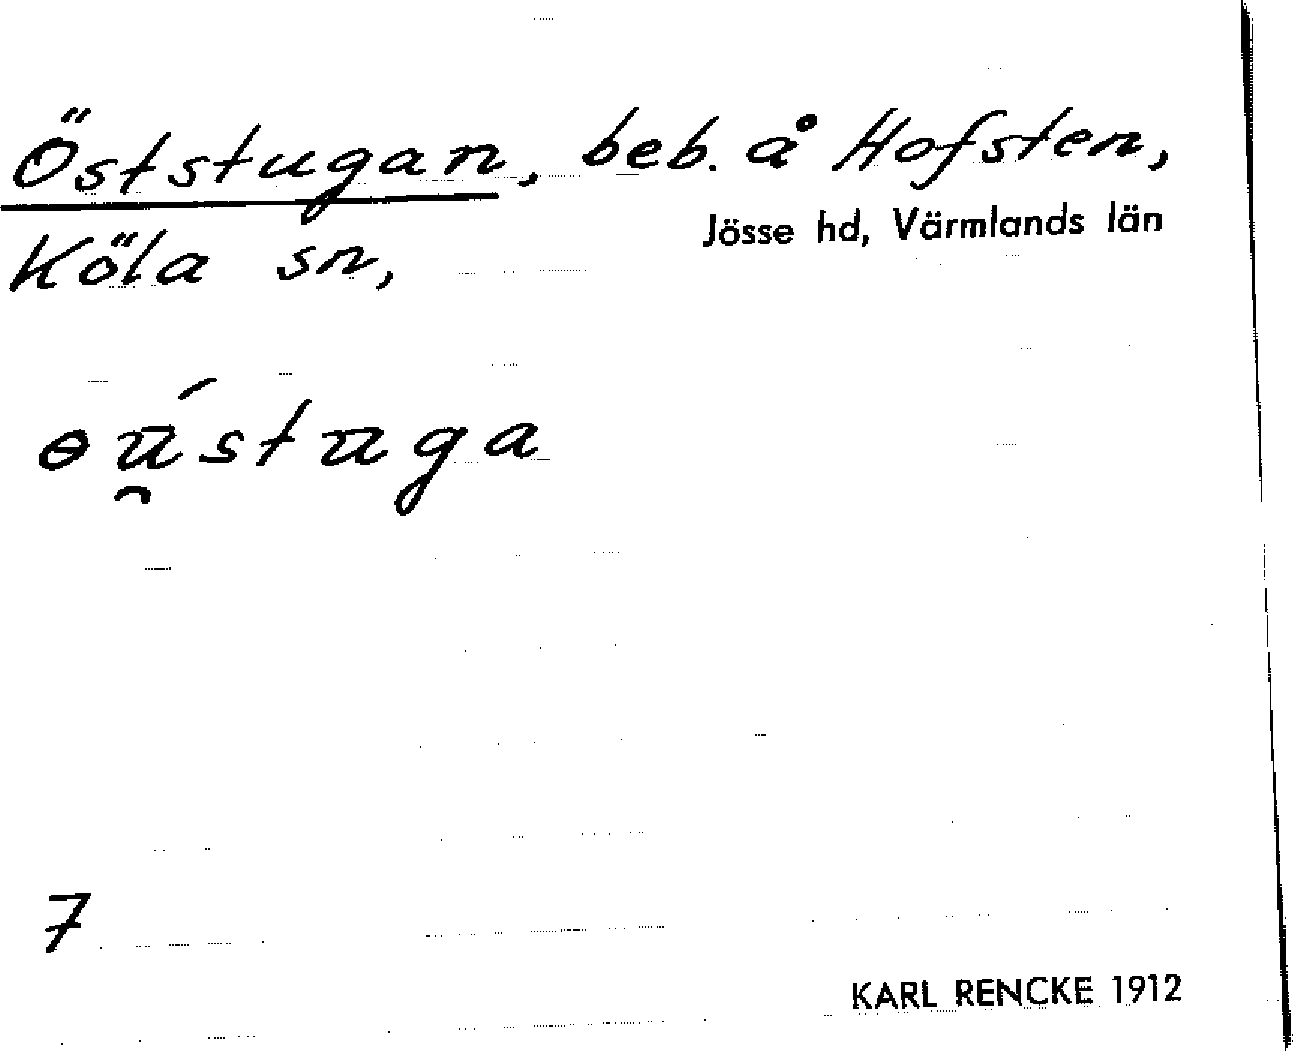 Öststugan, beb. å Hofsten,
Jösse hd, Värmlands län
Köla sn,
ɵú̯stuga
7
KARL RENCKE 1912